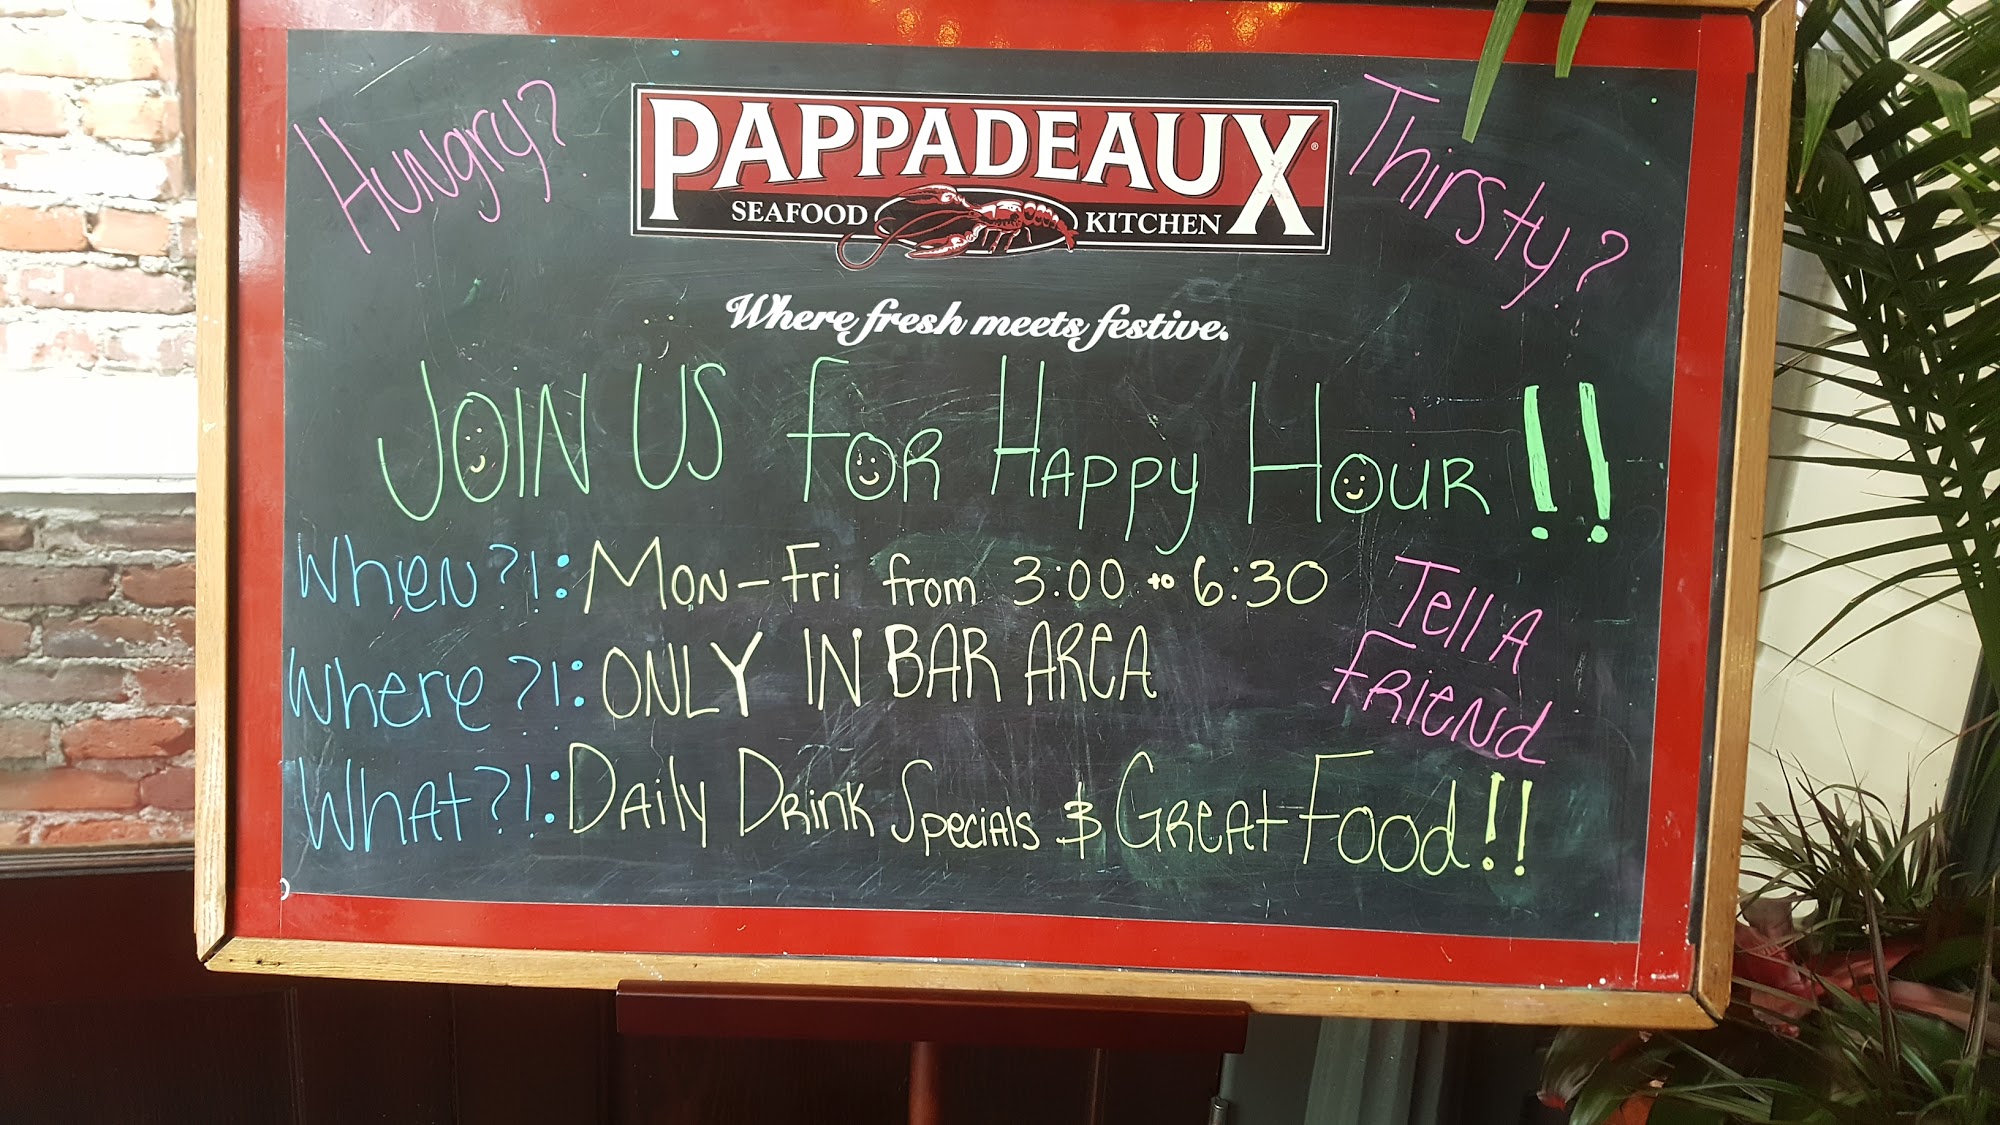 Hungry?
PAPPADEAUX®
SEAFOOD KITCHEN
Thirsty?
Where fresh meets festive.
JOIN US FOR HAPPY HOUR!!
When?!: MON-Fri from 3:00 to 6:30
Where?!: ONLY IN BAR AREA
Tell A
FRiENd
WHAT?!: DAily DRiNK SpeciAls & GREAT FOOd!!